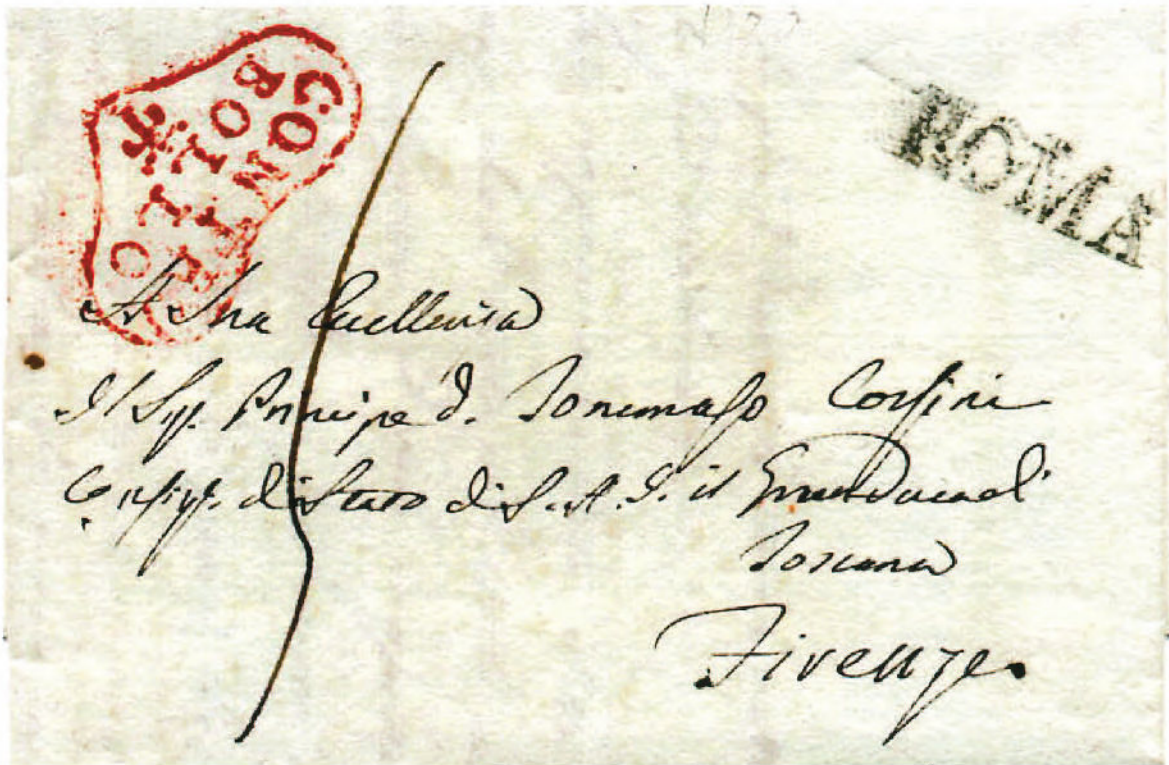 CONTRO
BOLLO
ROMA
A Sua Eccellenza
Il Sig. Principe D. Tommaso Corsini
Consigl. di Stato di S. A. I. il Gran Duca di
Toscana
Firenze